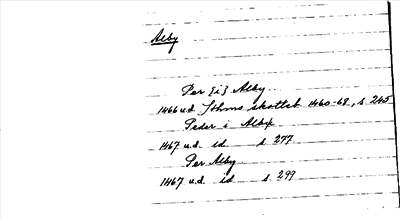 Alby
Per {i} Alby
1466 u.d. Sthms skotteb 1460-68, s 245
Peder i Alby
1467 u.d. id s 277
Per Alby
1467 u.d. id s 299